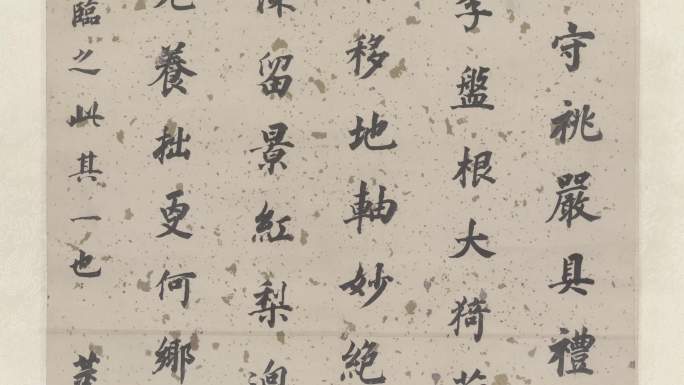 守祧嚴具禮
李盤根大猗
移地軸妙絕
留景紅梨迥
養拙更何鄉
臨之此其一也